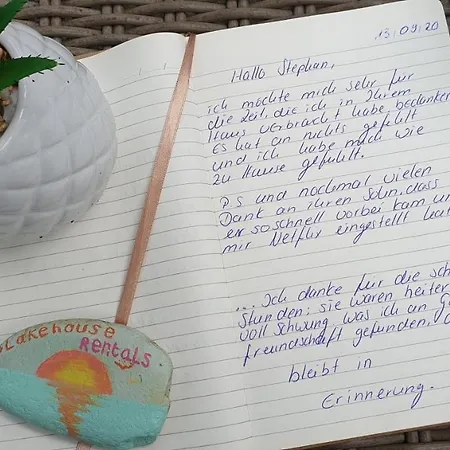 13.09.20
Hallo Stephan,
ich möchte mich sehr für
die Zeit, die ich in Ihrem
Haus verbracht habe bedanken
Es hat an nichts gefehlt
und ich habe mich wie
zu Hause gefühlt.
PS und nochmal vielen
Dank an ihren Sohn, dass
er so schnell vorbei kam un
mir Netflix eingestellt hat
... Ich danke für die sch
Stunden: sie waren heiter
voll Schwung, was ich an G
freundschaft gefunden,
bleibt in
Erinnerung.
Lakehouse
Rentals